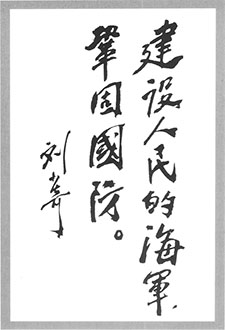 建设人民的海軍,
鞏固國防。
刘少奇